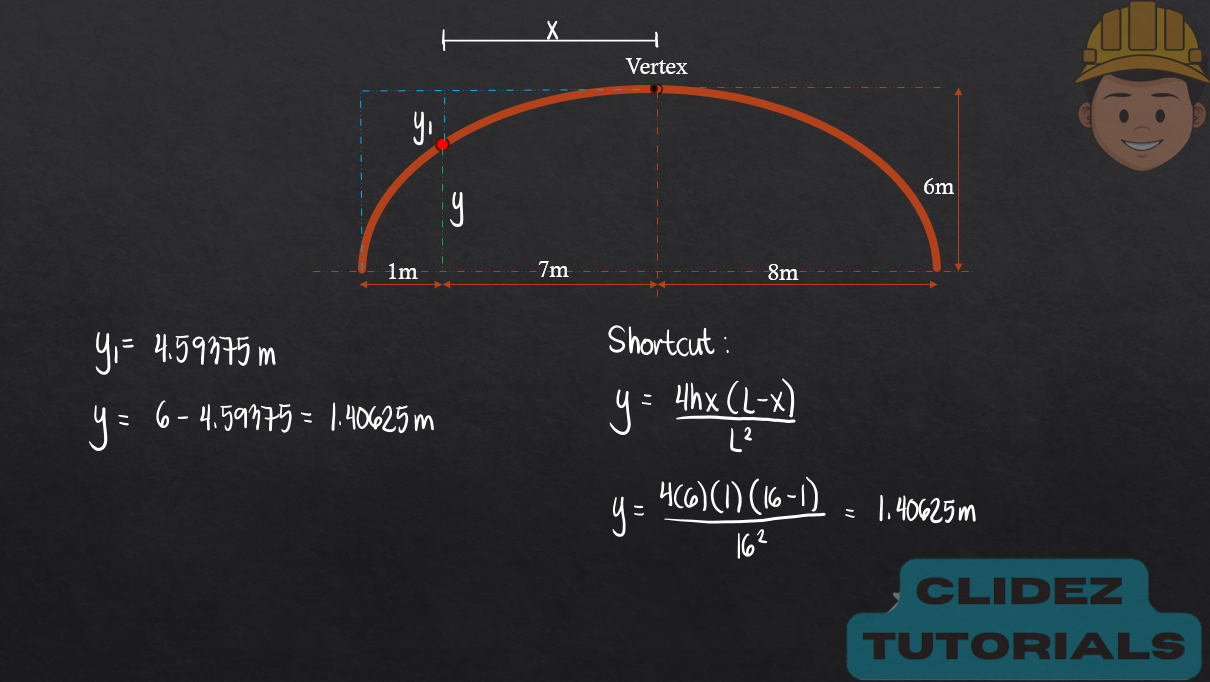 x
Vertex
y₁
y
6m
1m
7m
8m
y₁ = 4.59375 m
y = 6 - 4.59375 = 1.40625 m
Shortcut :
y = 4hx (L-x) / L²
y = 4(6)(1)(16-1) / 16² = 1.40625 m
CLIDEZ
TUTORIALS